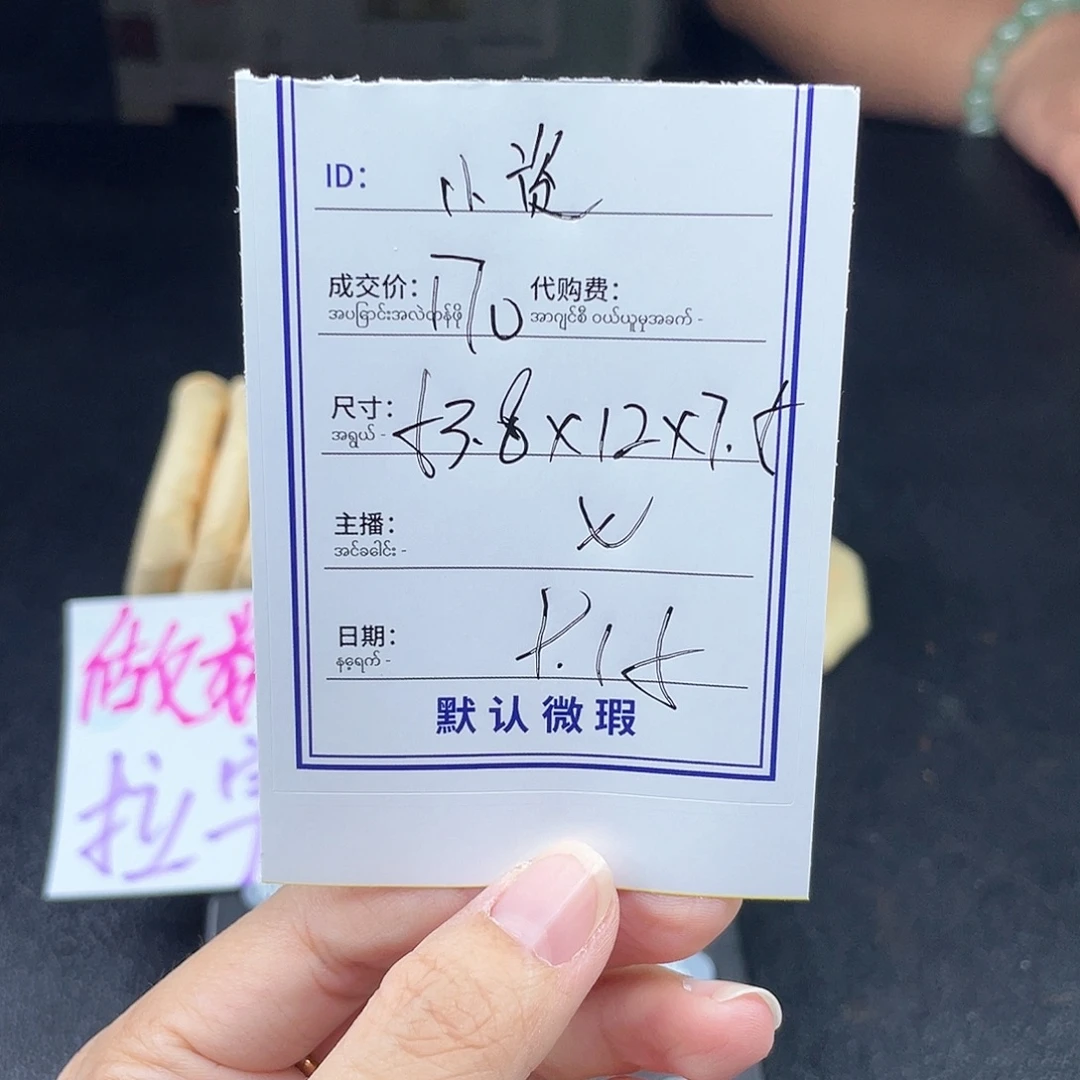 ID: 小
成交价: 170 代购费:
အပြောင်းအလဲတန်ဖိုး အာဂျင်စီ ဝယ်ယူမှုအခက် -
尺寸: 53.8×12×7.5
အရွယ် -
主播: ×
အင်ခေါင်း -
日期: 8.15
နေ့ရက် -
默认微瑕
做
拉